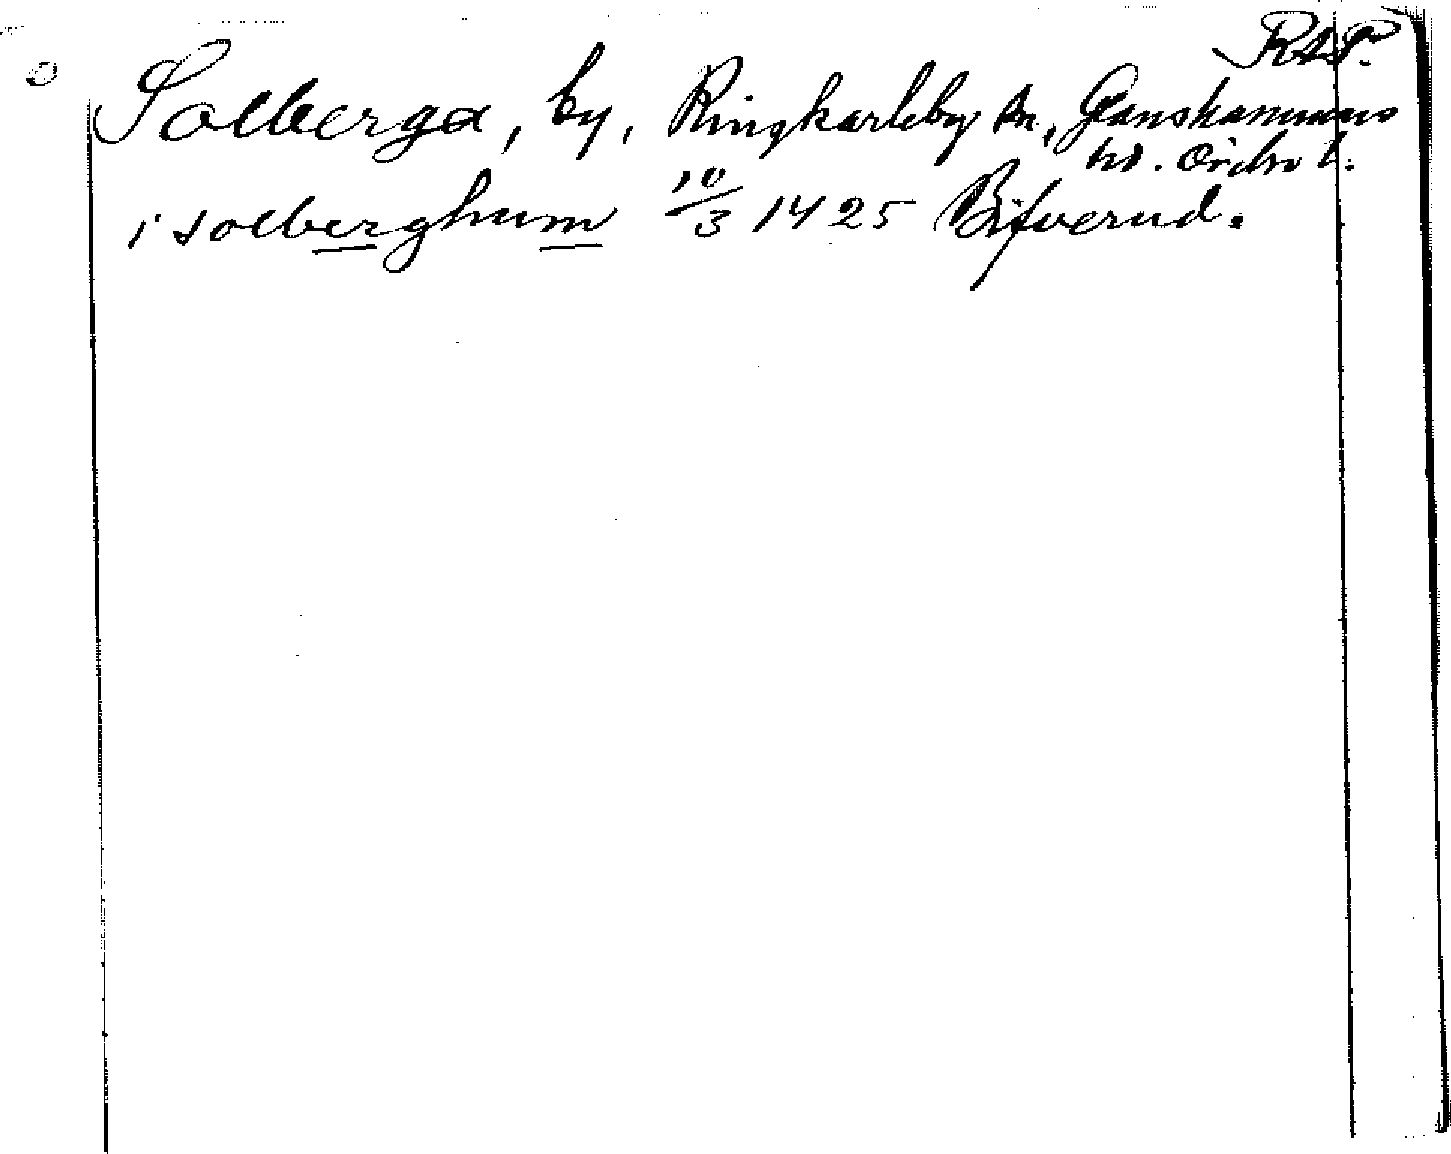 RAP.
Solberga, by, Ringkarleby sn, Glanshammars
hd. Örebro l.
i solberghum 10/3 1425 Bitverud.